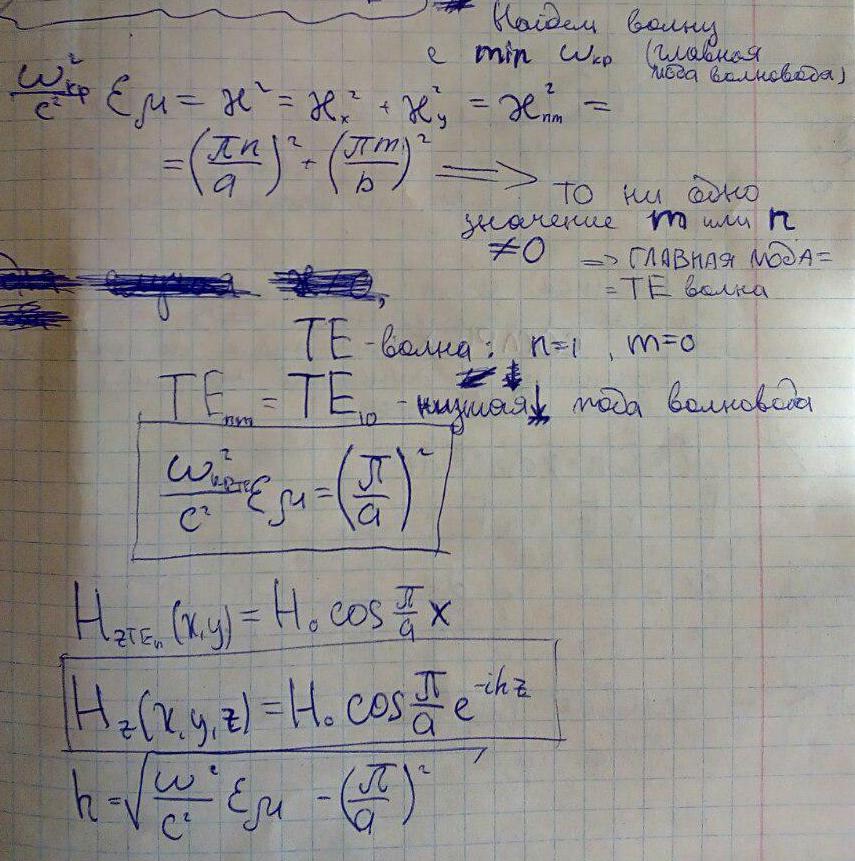 Найдем волну
с min ω_кр (главная
мода волновода)
ω²_кр/c² εμ = ϰ² = ϰ_x² + ϰ_y² = ϰ²_nm =
= (πn/a)² + (πm/b)² ⟹
то ни одно
значение m или n
≠0 => ГЛАВНАЯ МОДА=
= TE волна
TE-волна: n=1, m=0
TE_nm = TE_10 - низшая мода волновода
ω²_крTE/c² εμ = (π/a)²
H_zTE_n (x,y) = H₀ cos π/a x
H_z(x,y,z) = H₀ cos π/a e^(-ihz)
h = √(ω²/c² εμ - (π/a)²)